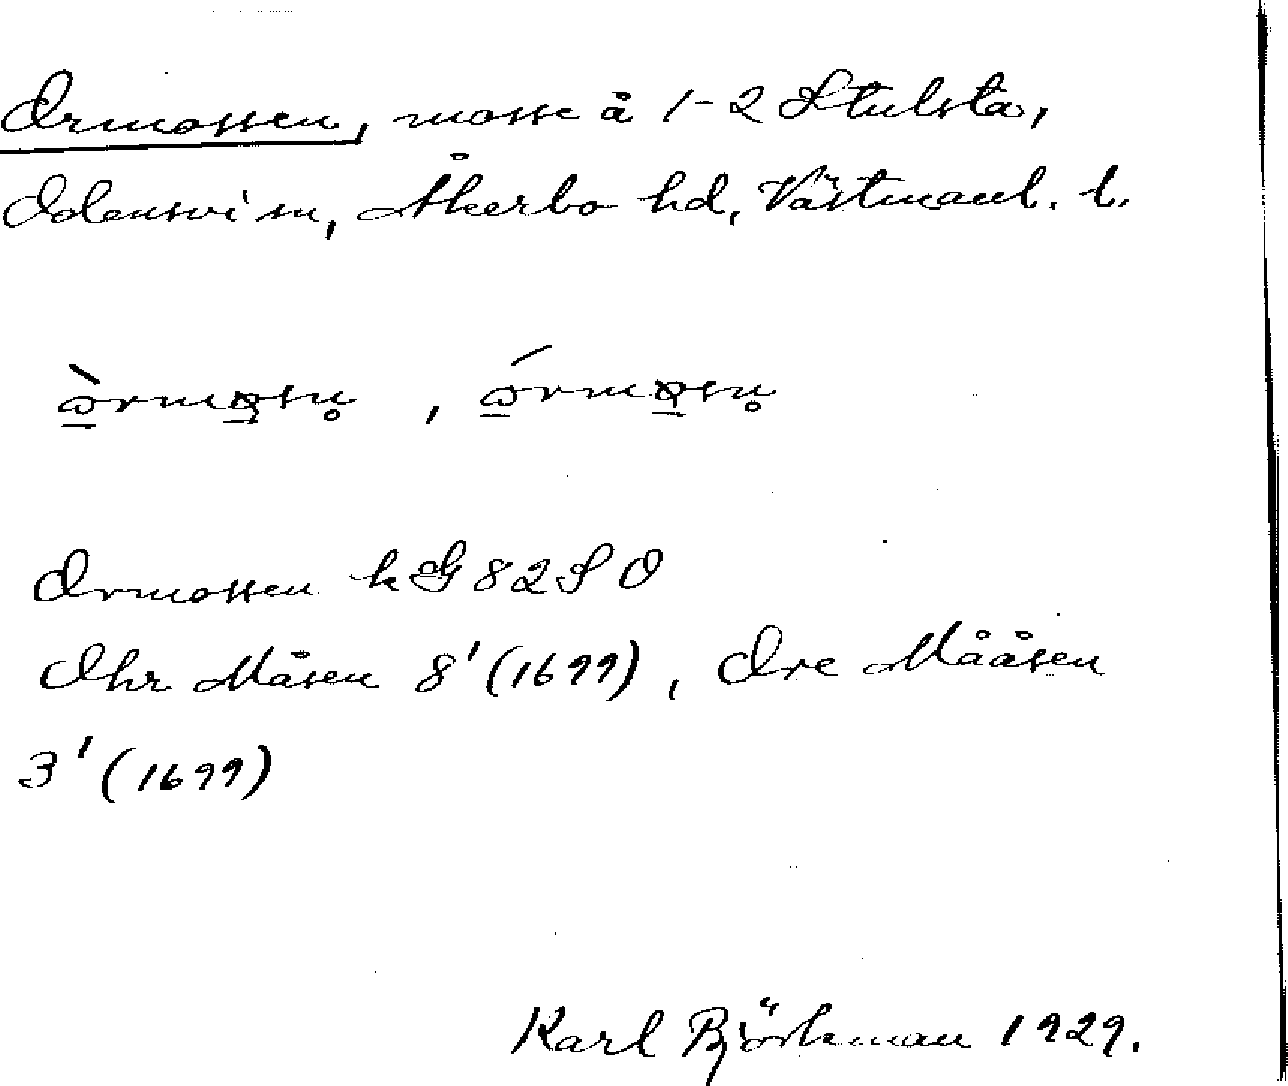 Ormossen, mosse å 1-2 Stulsta,
Odensvi sn, Åkerbo hd, Västmanl. l.
ɷ̀rmɷsn̥ , ɷ́rmɷsn̥
Ormossen hG 82 S O
Ohr Måsen 8' (1699), Ore Mååsen
3' (1699)
Karl Björkman 1929.